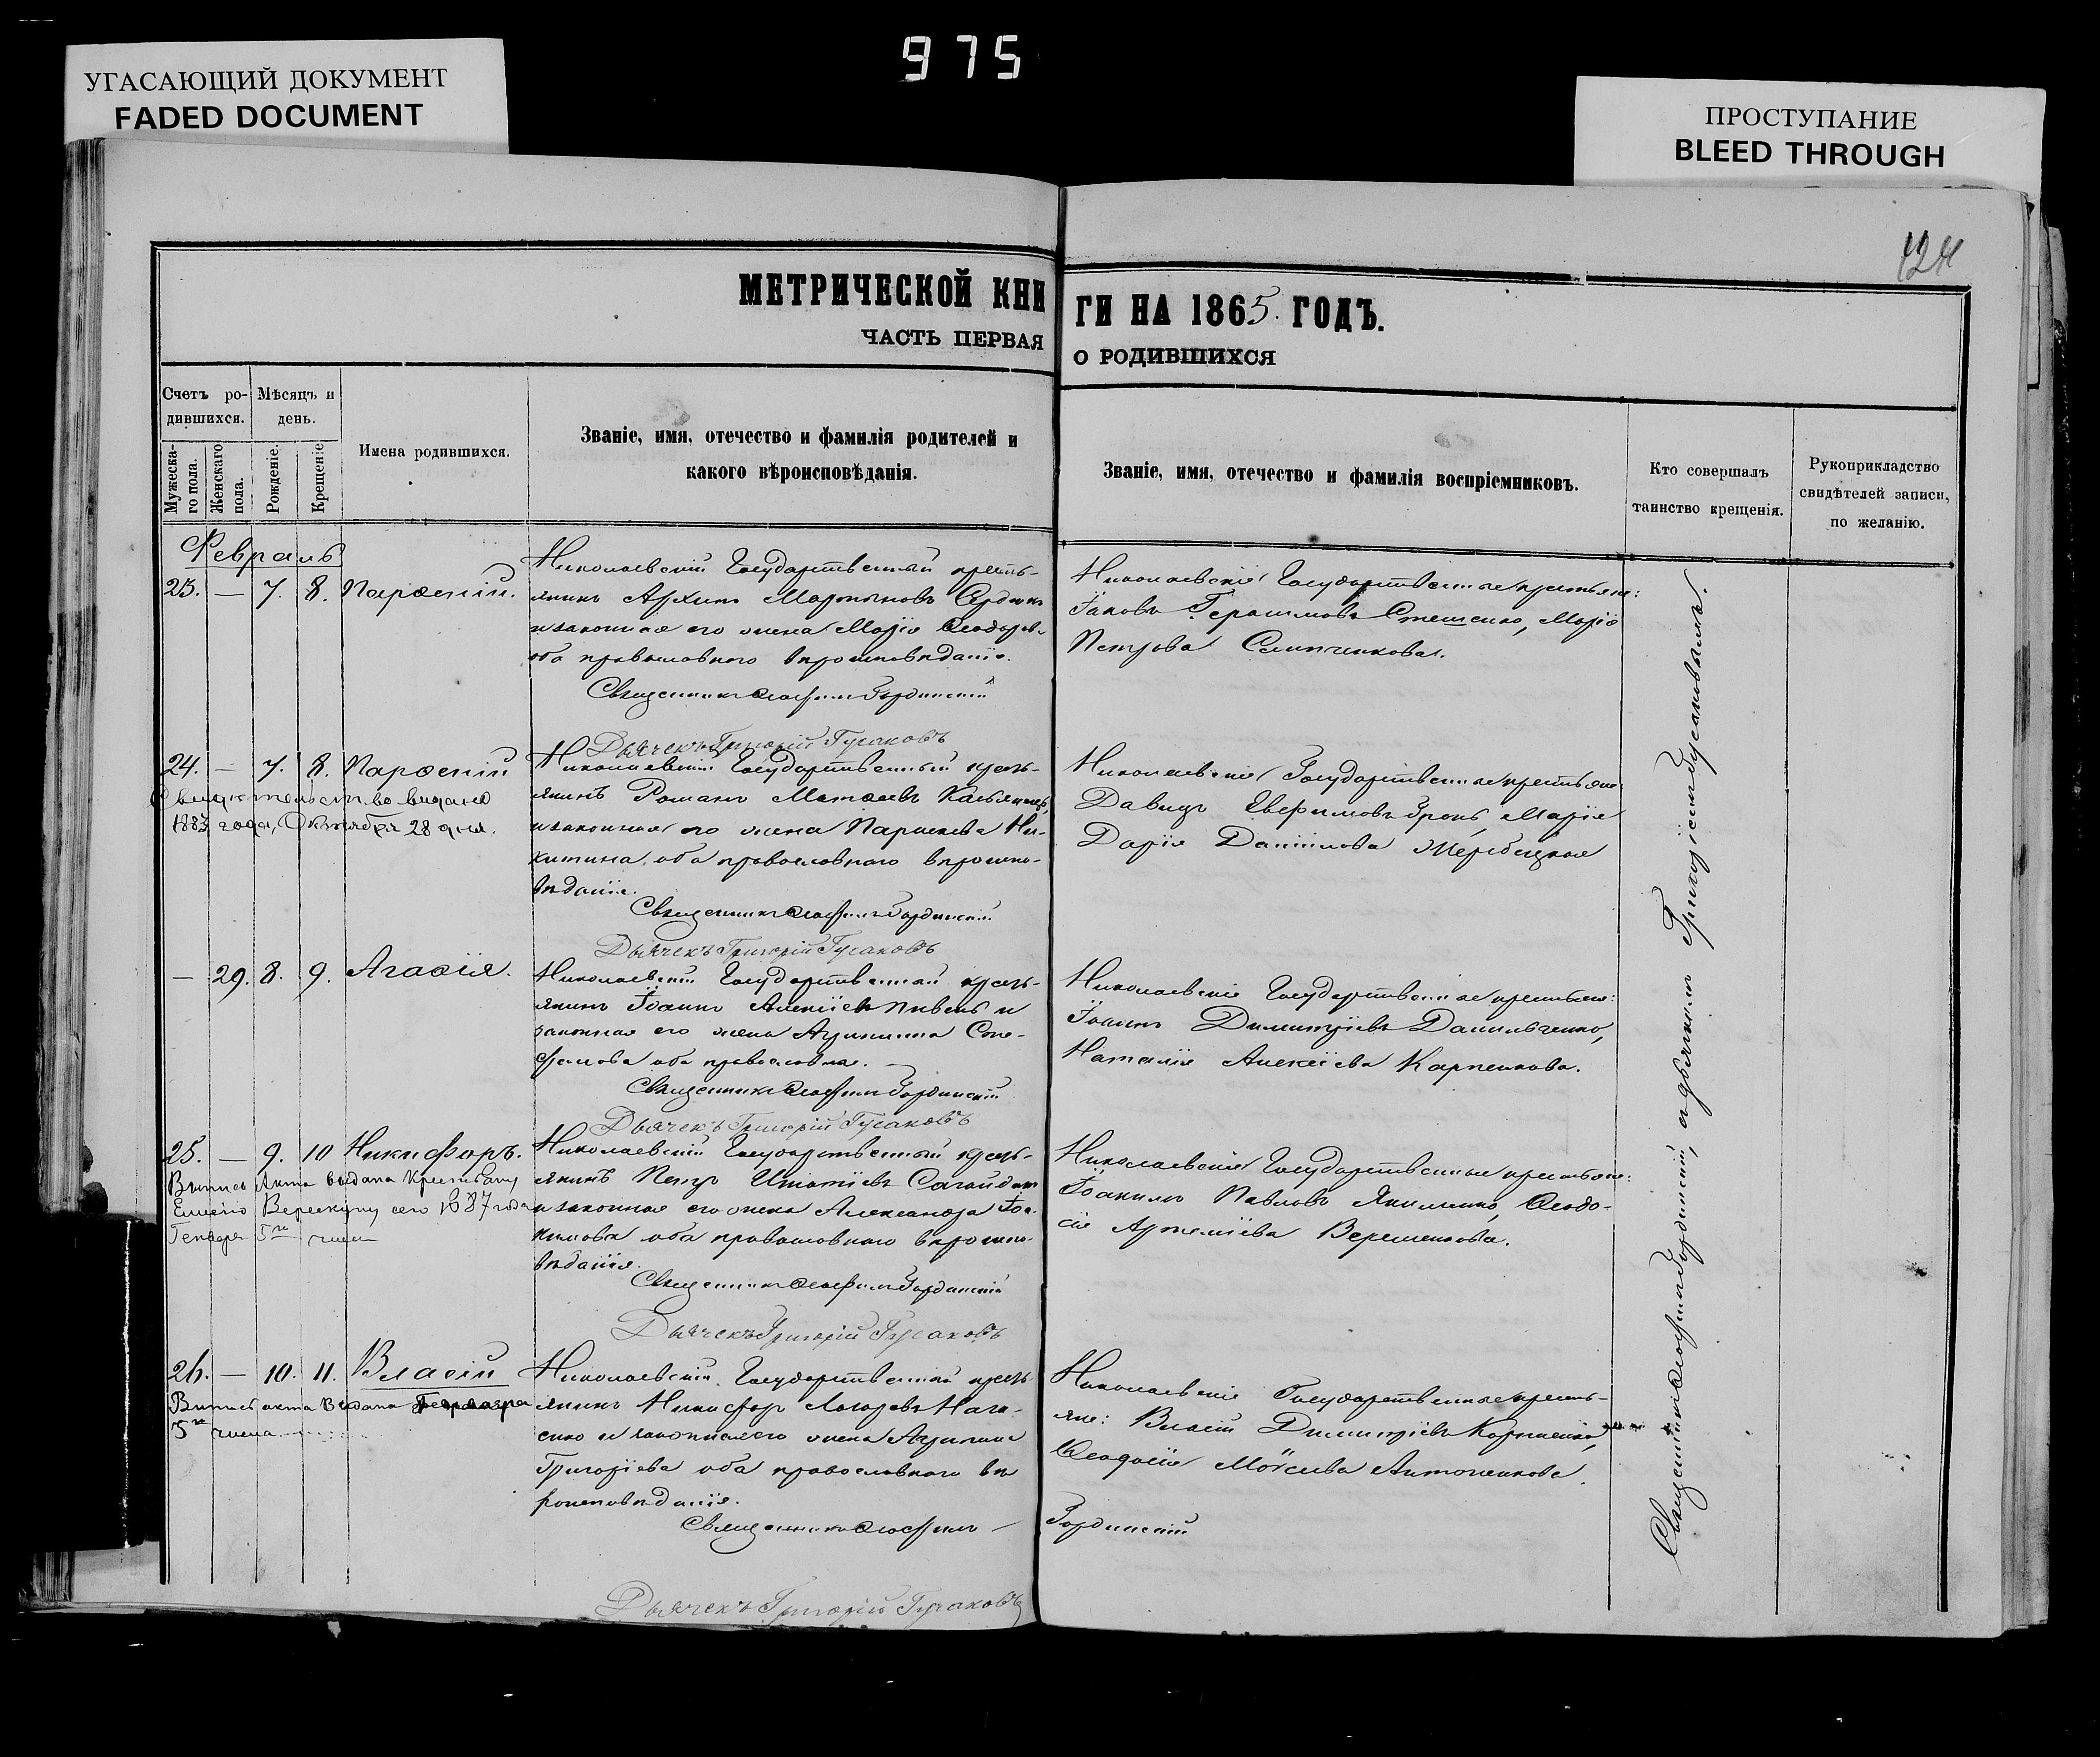 975
УГАСАЮЩИЙ ДОКУМЕНТ
FADED DOCUMENT
ПРОСТУПАНИЕ
BLEED THROUGH
124
МЕТРИЧЕСКОЙ КНИ
ГИ НА 1865 ГОДЪ.
ЧАСТЬ ПЕРВАЯ
О РОДИВШИХСЯ
Счетъ ро-
дившихся.
Мужеска-
го пола.
Женскаго
пола.
Мѣсяцъ и
день.
Рожденіе.
Крещеніе
Имена родившихся.
Званіе, имя, отечество и фамилія родителей и
какого вѣроисповѣданія.
Званіе, имя, отечество и фамилія воспріемниковъ.
Кто совершалъ
таинство крещенія.
Рукоприкладство
свидѣтелей записи,
по желанію.
Февраль
23. — 7. 8. Парѳеній.
Николаевскій Государственный кресть-
янинъ Архипъ Мартыновъ Сердюкъ
и законная его жена Марія Ѳеодоров-
оба православного вѣроисповѣданія.
Священникъ Іосифъ Гординскій
Дьячекъ Григорій Гусаковъ
Николаевскіе Государственные крестьяне:
Іаковъ Герасимовъ Стешенко, Марія
Петрова
24. — 7. 8. Парѳеній
Свидѣтельство выдано
1883 года, Октября 28 дня.
Николаевскій Государственный кресть-
янинъ Романъ Матѳеевъ
и законная его жена Параскева Ни-
китина оба православного вѣроиспо-
вѣданія.
Священникъ Іосифъ Гординскій
Дьячекъ Григорій Гусаковъ
Николаевскіе Государственные крестьяне
Давидъ Евфимовъ Марія
Дарія Даніилова
— 29. 8. 9. Агаѳія.
Николаевскій Государственный кресть-
янинъ Іоаннъ Алексіевъ Пивень и
законная его жена Агрипина Сте-
фанова оба православна.
Священникъ Іосифъ Гординскій
Дьячекъ Григорій Гусаковъ
Николаевскіе Государственные крестьяне:
Іоаннъ Димитріевъ Данильченко,
Наталія Алексіева Карпенкова.
25. — 9. 10 Никифоръ.
Выпись Акта выдана Крестьяну
сего 1887 года
Генваря 5го числа
Николаевскій Государственный кресть-
янинъ Петръ Игнатіевъ Сагайдакъ
и законная его жена Александра Іоа-
кимова оба православного вѣроиспо-
вѣданія.
Священникъ Іосифъ Гординскій
Дьячекъ Григорій Гусаковъ
Николаевскіе Государственные крестьяне:
Іоакимъ Павловъ Якименко, Ѳеодо-
сія Артеміева
26. — 10. 11. Власій
Выпись акта выдана
5го числа
Николаевскій Государственный кресть-
янинъ Никифор Лазаревъ Нага-
енко и законная его жена Агрипина
Григоріева оба православного вѣ
роисповѣданія.
Священникъ Іосифъ —
Гординскій
Дьячекъ Григорій Гусаковъ
Николаевскіе Государственные кресть-
яне: Власій Димитріевъ Корніенко,
Ѳеодосія Моѵсеева Антоненкова.
Священникъ Іосифъ Гординскій, и дьячкомъ Григоріемъ Гусаковымъ.